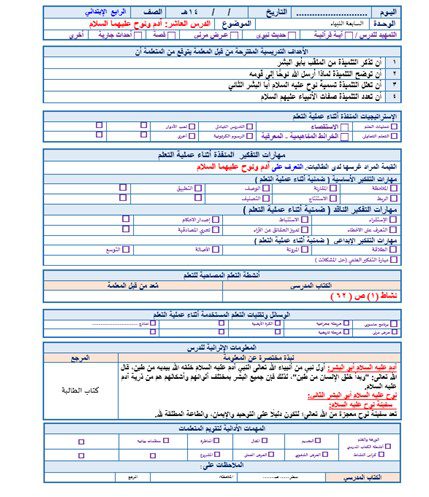 اليوم ............................ التاريخ / / ١٤هـ الصف الرابع الإبتدائي
الوحدة السابعة النبياء الموضوع الدرس العاشر: آدم ونوح عليهما السلام
التمهيد للدرس / آية قرآنية حديث نبوي عرض مرئي قصة أحداث جارية أخرى
الأهداف التدريسية المقترحة من قبل المعلمة يتوقع من المتعلمة أن
١ أن تذكر التلميذة من الملقب بأبو البشر
٢ أن توضح التلميذة لماذا أرسل الله نوحًا إلى قومه
٣ أن تعلل التلميذة تسمية نوح عليه السلام أبا البشر الثاني
٤ أن تعدد التلميذة صفات الأنبياء عليهم السلام
الإستراتيجيات المنفذة أثناء عملية التعلم
عمليات العلم الاستقصاء التدريس التبادلي لعب الأدوار
التعلم التعاوني الخرائط المفاهيمية - المعرفية الرسوم الكرتونية أخرى
مهارات التفكير المنفذة أثناء عملية التعلم
القيمة المراد غرسها لدى الطالبات: التعرف على آدم ونوح عليهما السلام
مهارات التفكير الأساسية ( ضمنية أثناء عملية التعلم )
الملاحظة المقارنة الوصف التطبيق
الربط الاستنتاج التصنيف
مهارات التفكير الناقد ( ضمنية أثناء عملية التعلم )
الإستقراء الاستنباط إصدار الأحكام
التعرف على الأخطاء تمييز الحقائق عن الآراء تحري المصداقية
مهارات التفكير الإبداعي ( ضمنية أثناء عملية التعلم )
الطلاقة المرونة الأصالة التوسع
مهارة التفكير العلمي (حل المشكلات )
أنشطة التعلم المصاحبة للتعلم
الكتاب المدرسي مُعد من قبل المعلمة
نشاط (١) ص ( ٦٢ )
الوسائل وتقنيات التعلم المستخدمة أثناء عملية التعلم
المعلومات الإثرائية للدرس
نبذة مختصرة عن المعلومة المرجع
آدم عليه السلام أبو البشر:
أول نبي من أنبياء الله تعالى النبي آدم عليه السلام خلقه الله بيديه من طين، قال
الله تعالى: "وبدأ خلق الإنسان من طين". لذلك فإن جميع البشر بمختلف ألوانهم وأشكالهم هم من ذرية آدم
عليه السلام.
كتاب الطالبة
نوح عليه السلام أبو البشر الثاني:
سفينة نوح عليه السلام:
تعد سفينة نوح معجزة من الله تعالى؛ لتكون دليلًا على التوحيد والإيمان، والطاعة المطلقة لله.
المهمات الأدائية لتقويم المتعلمات
الملاحظات على:
الكتاب المدرسي